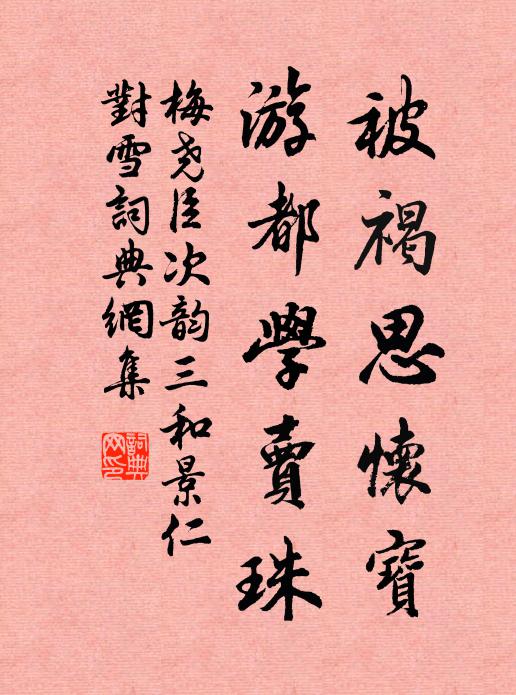 被褐思懷寶
游都學賣珠
梅尧臣次韵三和景仁
對雪詞典網集
詞典网印